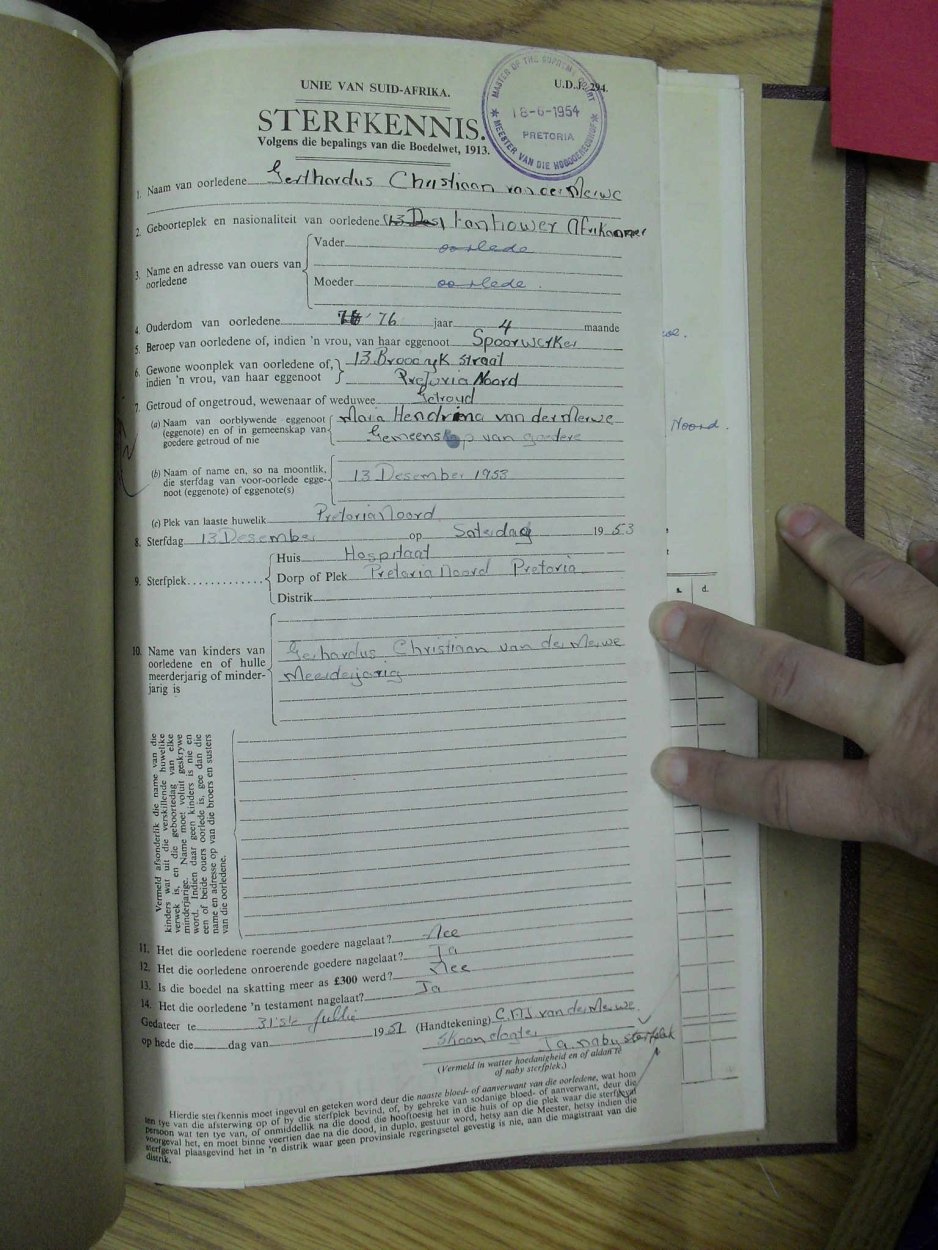 UNIE VAN SUID-AFRIKA.
U.D.J. 294.
MASTER OF THE SUPREME COURT
18-6-1954
PRETORIA
MEESTER VAN DIE HOOGGEREGSHOF
STERFKENNIS.
Volgens die bepalings van die Boedelwet, 1913.
1. Naam van oorledene Gerthardus Christiaan van der Merwe
2. Geboorteplek en nasionaliteit van oorledene Afrikaaner
3. Name en adresse van ouers van oorledene
Vader oorlede
Moeder oorlede.
4. Ouderdom van oorledene 76 jaar 4 maande
5. Beroep van oorledene of, indien 'n vrou, van haar eggenoot Spoorwerker
6. Gewone woonplek van oorledene of, 13 Broodryk straat
indien 'n vrou, van haar eggenoot Pretoria Noord
7. Getroud of ongetroud, wewenaar of weduwee Getroud
(a) Naam van oorblywende eggenoot Maria Hendrina van der Merwe
(eggenote) en of in gemeenskap van Gemeenskap van goedere
goedere getroud of nie
(b) Naam of name en, so na moontlik,
die sterfdag van voor-oorlede egge- 13 Desember 1953
noot (eggenote) of eggenote(s)
(c) Plek van laaste huwelik Pretoria Noord
8. Sterfdag 13 Desember op Saterdag 1953
9. Sterfplek
Huis Hospitaal
Dorp of Plek Pretoria Noord Pretoria
Distrik
10. Name van kinders van Gerhardus Christiaan van der Merwe
oorledene en of hulle Meerderjarig
meerderjarig of minder-
jarig is
Vermeld afsonderlik die name van die
kinders wat uit die verskillende huwelike
verwek is, en die geboortedag van elke
minderjarige. Name moet voluit geskrywe
word. Indien daar geen kinders is nie en
een of beide ouers oorlede is, gee dan die
name en adresse op van die broers en susters
van die oorledene.
11. Het die oorledene roerende goedere nagelaat? Nee
12. Het die oorledene onroerende goedere nagelaat? Ja
13. Is die boedel na skatting meer as £300 werd? Nee
14. Het die oorledene 'n testament nagelaat? Ja
Gedateer te 31ste Julie
op hede die dag van 1951 (Handtekening) C.M.J. van der Merwe
Skoondogter
Ja naby sterfplek
(Vermeld in watter hoedanigheid en of aldan te
of naby sterfplek.)
Hierdie sterfkennis moet ingevul en geteken word deur die naaste bloed- of aanverwant van die oorledene, wat hom
ten tye van die afsterwing op of by die sterfplek bevind, of, by gebreke van sodanige bloed- of aanverwant, deur die
persoon wat ten tye van, of onmiddellik na die dood die hooftoesig het in die huis of op die plek waar die sterfgeval
voorgeval het, en moet binne veertien dae na die dood, in duplo, gestuur word, hetsy aan die Meester, hetsy indien die
sterfgeval plaasgevind het in 'n distrik waar geen provinsiale regeringsetel gevestig is nie, aan die magistraat van die
distrik.
Noord.
s. d.